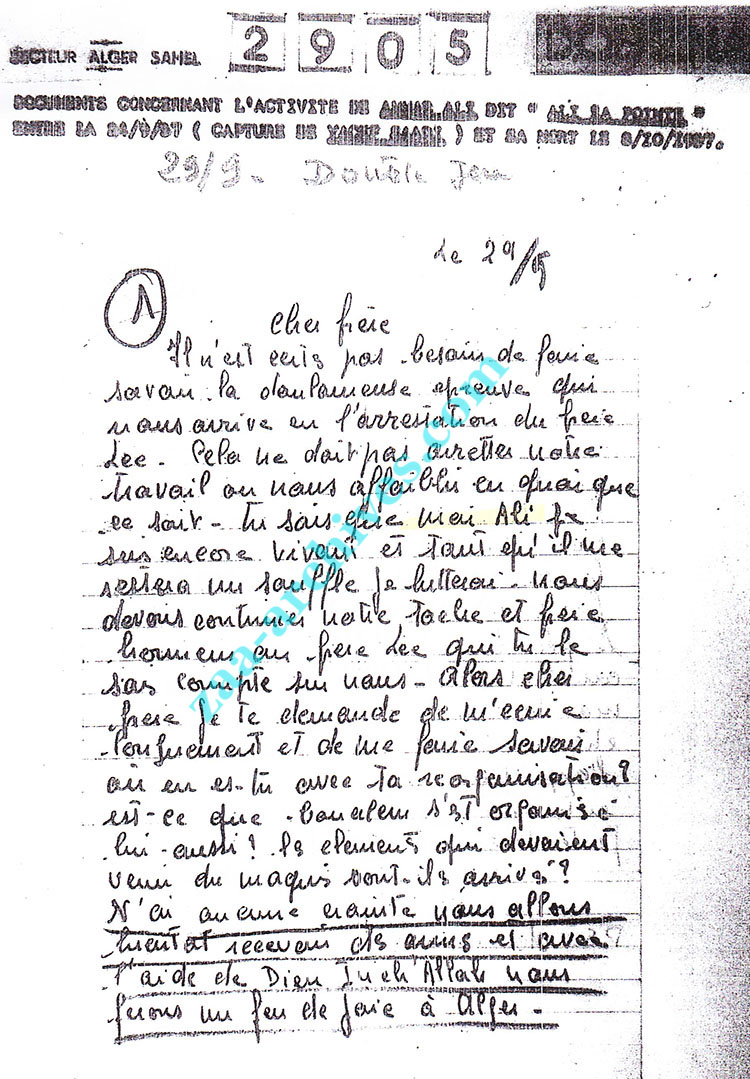 2905
SECTEUR ALGER SAHEL
DOCUMENTS CONCERNANT L'ACTIVITE DE AMMAR ALI DIT " ALI LA POINTE "
ENTRE LA 24/9/57 ( CAPTURE DE YACEF SAADI ) ET SA MORT LE 8/10/1957.
29/9 - Double
Le 29/9
1
Cher frère
Il n'est certs pas besoin de faire
savoir la douloureuse epreuve qui
nous arrive en l'arrestation du frere
Lee. Cela ne doit pas arretter notre
travail ou nous affaiblir en quoi que
ce soit - tu sais que moi Ali je
suis encore vivant et tant qu'il me
restera un souffle je lutterai. nous
devons continuer notre tache et faire
honneur au frere Lee qui tu le
sas compte sur nous - Alors cher
frere je te demande de m'ecrire
longuement et de me faire savoir
où en es-tu avec ta reorganisation?
est-ce que boualem s'est organisé
lui-aussi? les elements qui devaient
venir du maquis sont-ils arrivés?
N'ai aucune crainte nous allons
bientot recevoir des armes et avec
l'aide de Dieu Inch'Allah nous
ferons un feu de joie à Alger -
zaa-archives.com